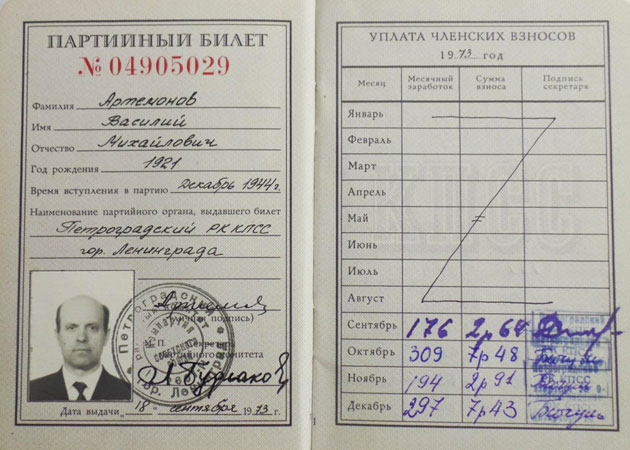 ПАРТИЙНЫЙ БИЛЕТ
№ 04905029
Фамилия Артемонов
Имя Василий
Отчество Михайлович
Год рождения 1921
Время вступления в партию Декабрь 1944 г.
Наименование партийного органа, выдавшего билет
Петроградский РК КПСС
гор. Ленинграда
(личная подпись)
М. П. Секретарь
партийного комитета
Дата выдачи „18" сентября 1973 г.
УПЛАТА ЧЛЕНСКИХ ВЗНОСОВ
1973 год
Месяц Месячный заработок Сумма взноса Подпись секретаря
Январь
Февраль
Март
Апрель
Май
Июнь
Июль
Август
Сентябрь 176 2р 64
Октябрь 309 7р 48
Ноябрь 194 2р 91
Декабрь 297 7р 43
КПСС